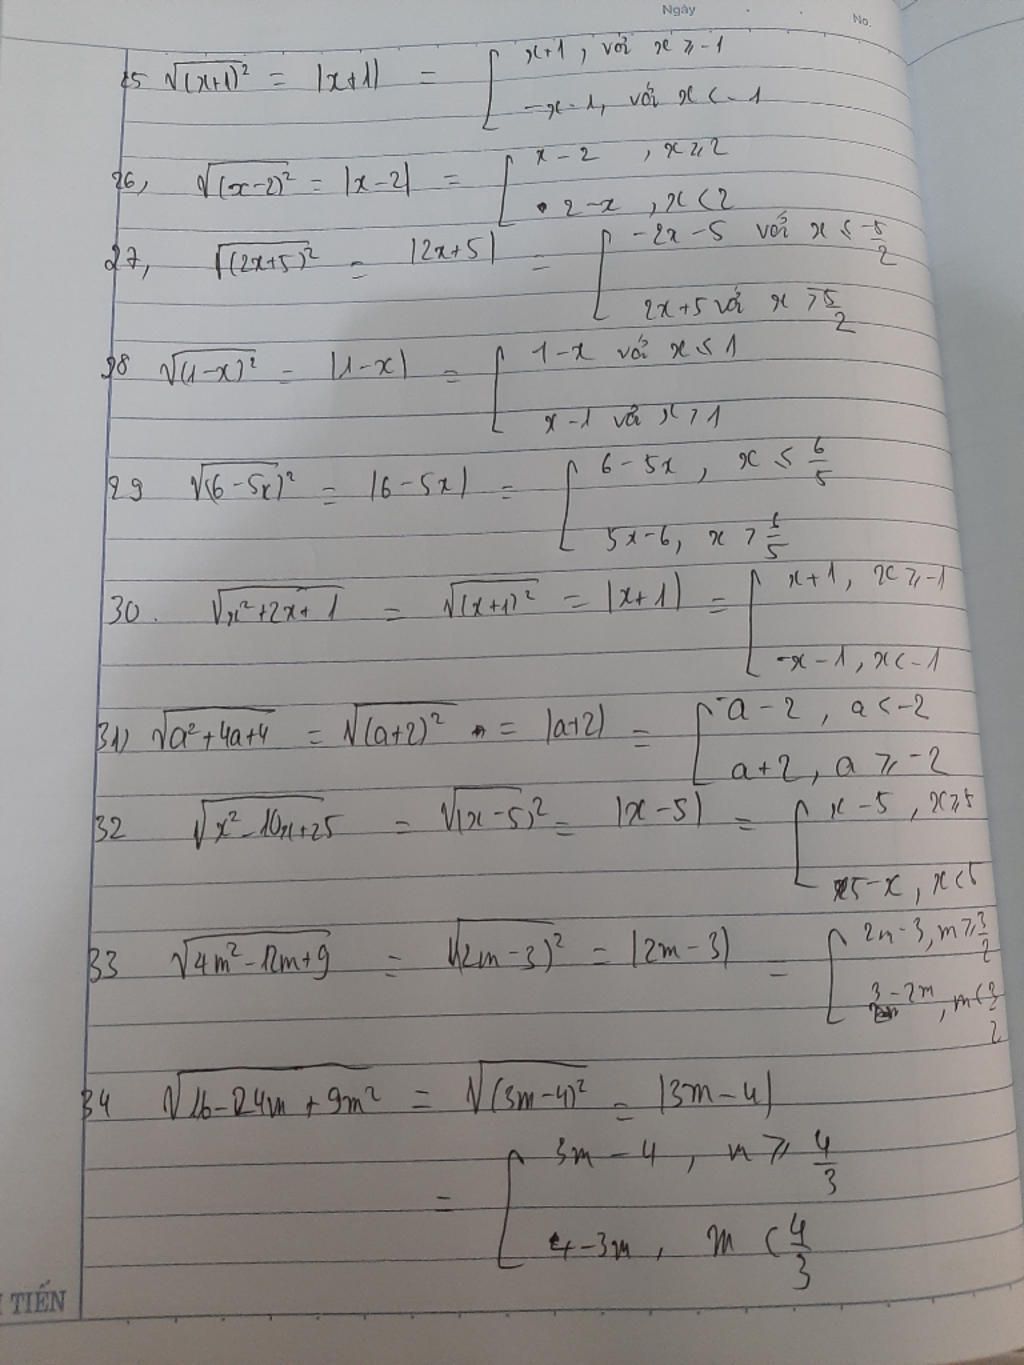 Ngày
No.
25 √(x+1)² = |x+1| = [ x+1, với x ≥ -1
-x-1, với x < -1
26, √(x-2)² = |x-2| = [ x-2 , x ≥ 2
2-x , x < 2
27, √(2x+5)² = |2x+5| = [ -2x-5 với x ≤ -5/2
2x+5 với x > -5/2
28 √(1-x)² = |1-x| = [ 1-x với x ≤ 1
x-1 với x > 1
29 √(6-5x)² = |6-5x| = [ 6-5x, x ≤ 6/5
5x-6, x > 6/5
30. √x²+2x+1 = √(x+1)² = |x+1| = [ x+1, x ≥ -1
-x-1, x < -1
31) √a²+4a+4 = √(a+2)² = |a+2| = [ -a-2, a < -2
a+2, a ≥ -2
32 √x²-10x+25 = √(x-5)² = |x-5| = [ x-5, x ≥ 5
5-x, x < 5
33 √4m²-12m+9 = √(2m-3)² = |2m-3| = [ 2m-3, m ≥ 3/2
3-2m, m < 3/2
34 √16-24m+9m² = √(3m-4)² = |3m-4|
= [ 3m-4, m ≥ 4/3
4-3m, m < 4/3
TIẾN